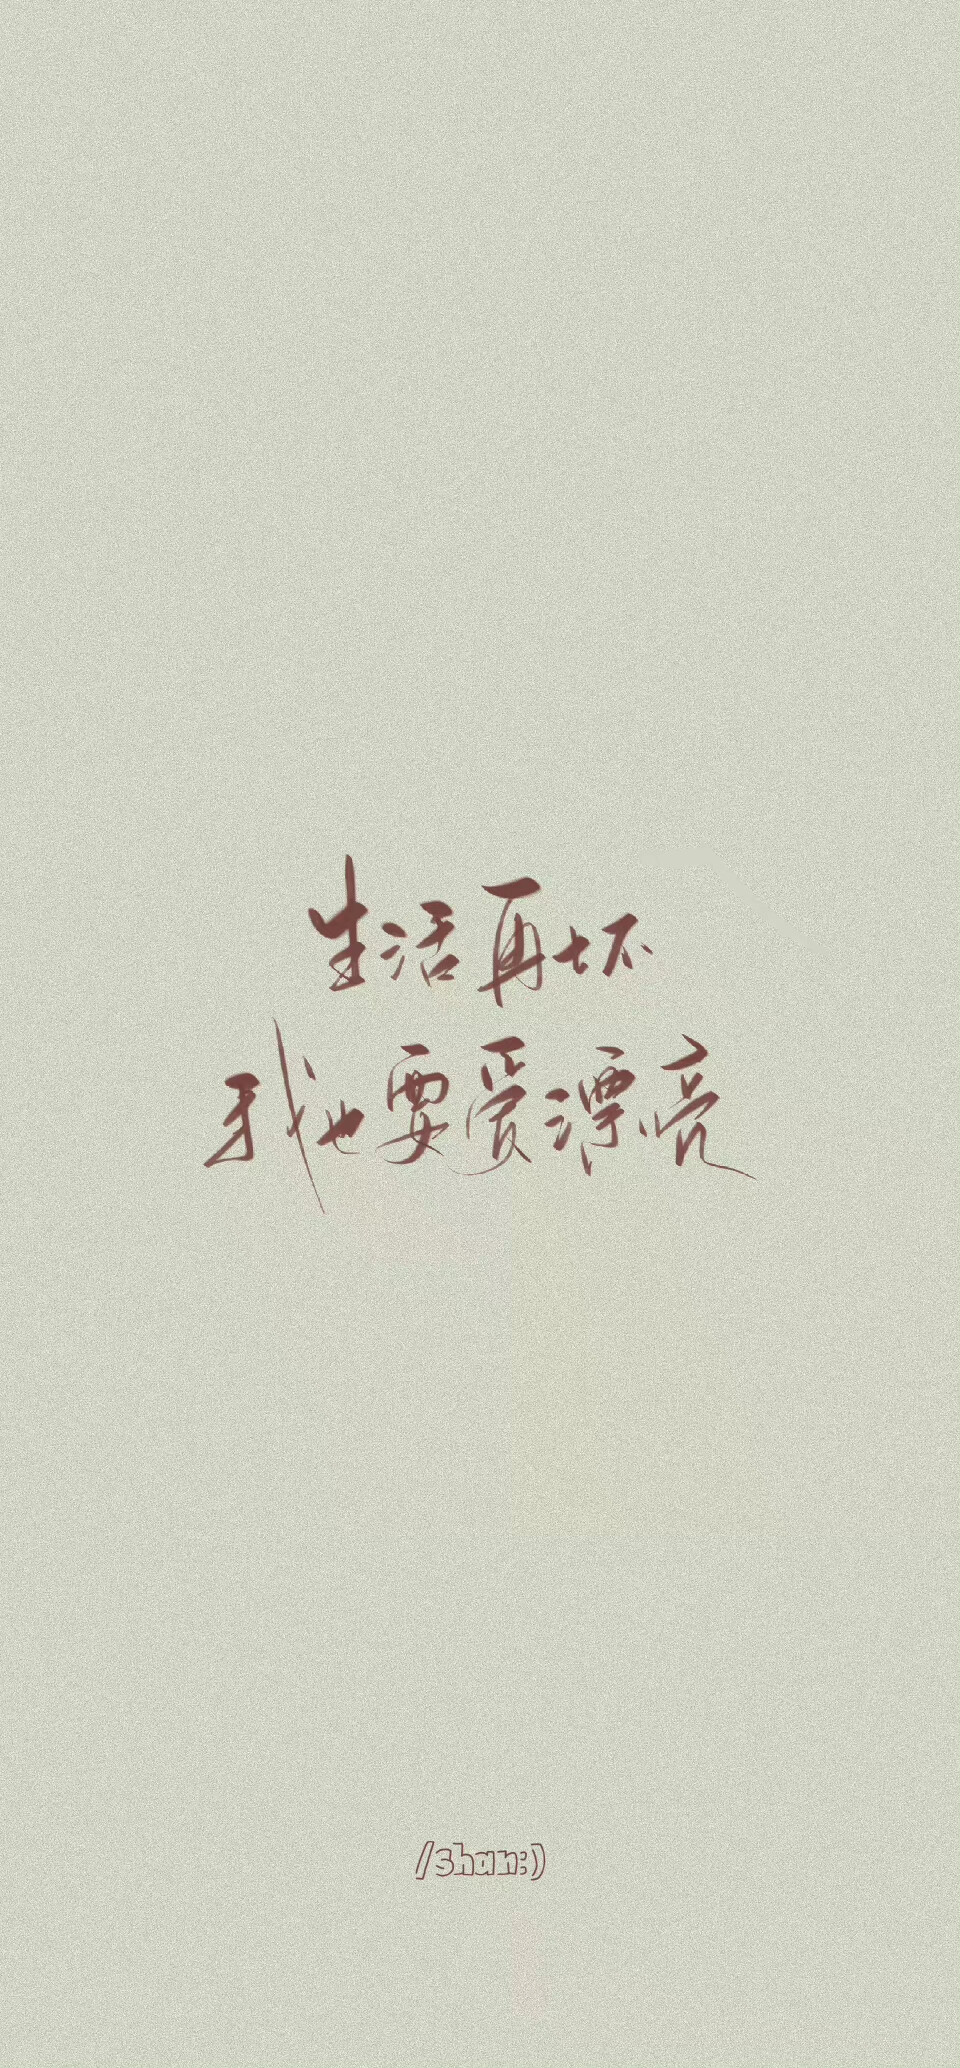 生活再坏
我也要爱漂亮
/shan:)